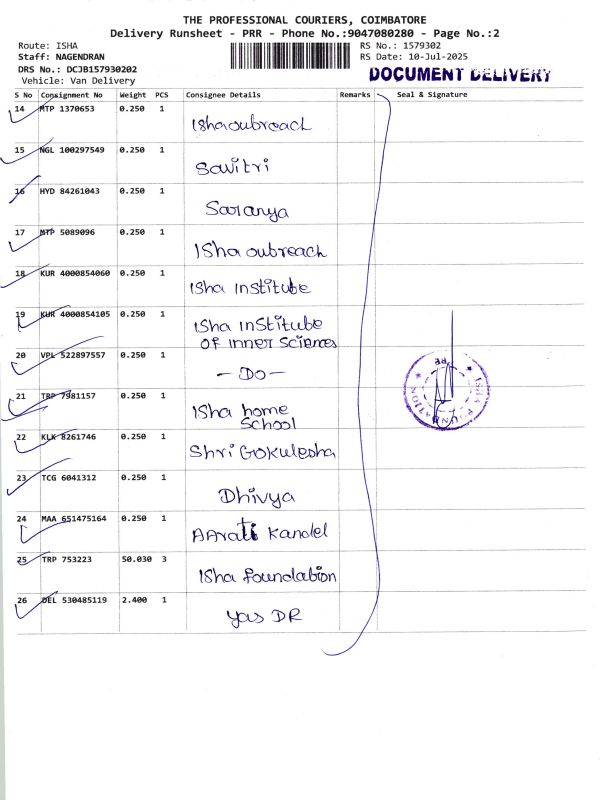 THE PROFESSIONAL COURIERS, COIMBATORE
Delivery Runsheet - PRR - Phone No.:9047080280 - Page No.:2
Route: ISHA
RS No.: 1579302
Staff: NAGENDRAN
RS Date: 10-Jul-2025
DRS No.: DCJB157930202
DOCUMENT DELIVERY
Vehicle: Van Delivery
S No Consignment No Weight PCS Consignee Details Remarks Seal & Signature
14 MTP 1370653 0.250 1
Isha outreach
15 NGL 100297549 0.250 1
Savitri
16 HYD 84261043 0.250 1
Saranya
17 MTP 5089096 0.250 1
Isha outreach
18 KUR 4000854060 0.250 1
Isha Institute
19 KUR 4000854105 0.250 1
Isha Institute
of Inner Sciences
20 VPL 522897557 0.250 1
- Do -
21 TRP 7981157 0.250 1
Isha home
School
22 KLK 8261746 0.250 1
Shri Gokulesha
23 TCG 6041312 0.250 1
Dhivya
24 MAA 651475164 0.250 1
AArati Kandel
25 TRP 753223 50.030 3
Isha foundation
26 DEL 530485119 2.400 1
yas DR
ISHA FOUNDATION